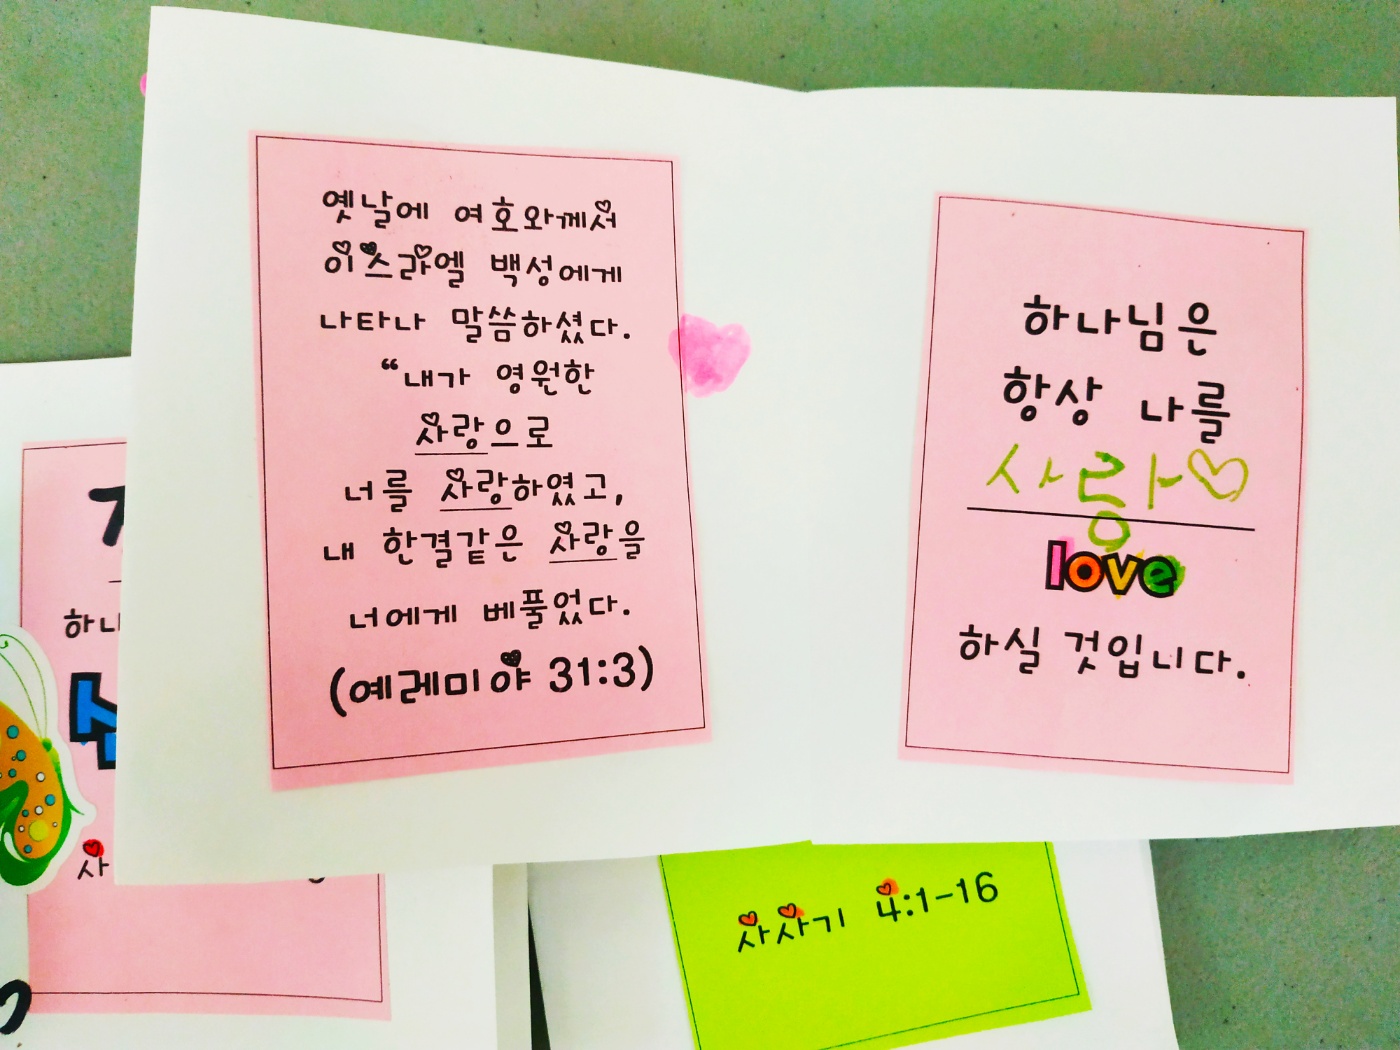 옛날에 여호와께서
이스라엘 백성에게
나타나 말씀하셨다.
“내가 영원한
사랑으로
너를 사랑하였고,
내 한결같은 사랑을
너에게 베풀었다.
(예레미야 31:3)
하나님은
항상 나를
사랑
love
하실 것입니다.
하나
사
사사기 4:1-16